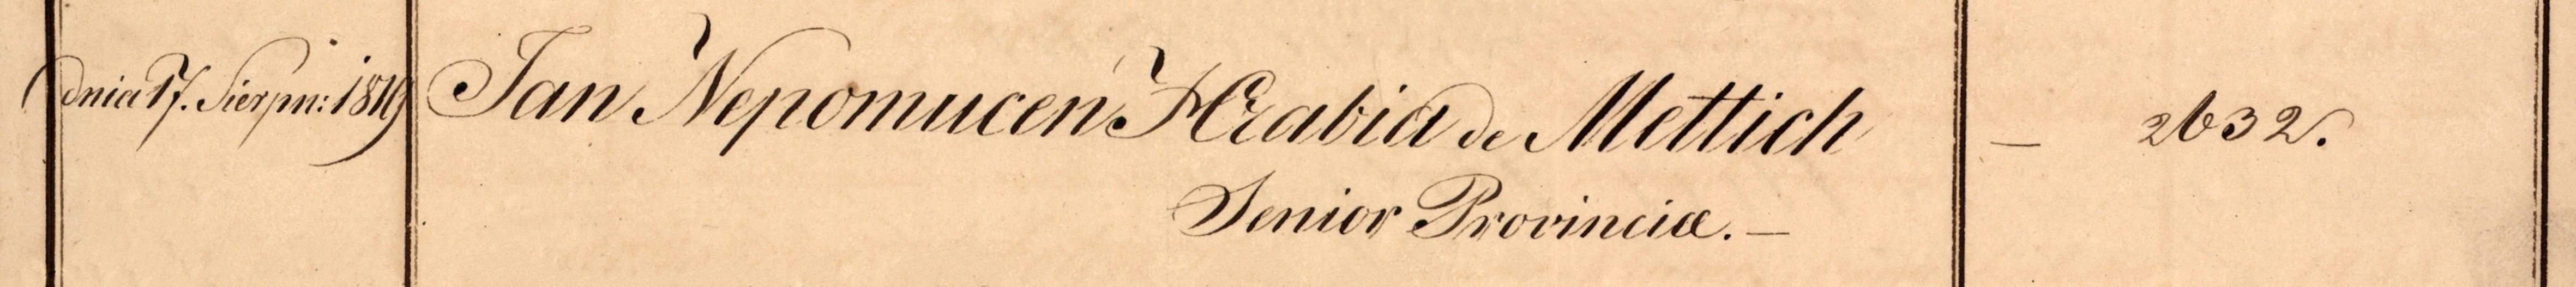 dnia 17. Sierpn: 1819 Jan Nepomucen Hrabia de Mettich — 2632.
Senior Provinciæ. —